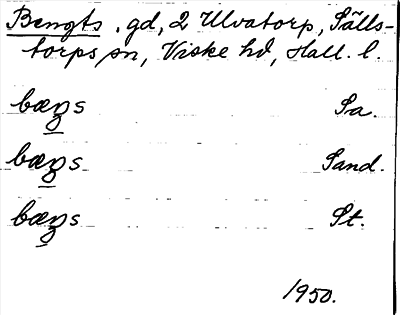 Bengts, gd, 2 Ulvatorp, Sälls-
torps sn, Viske hd, Hall. l.
bæŋs Sa.
bæŋs Sand.
bæŋs St.
1950.